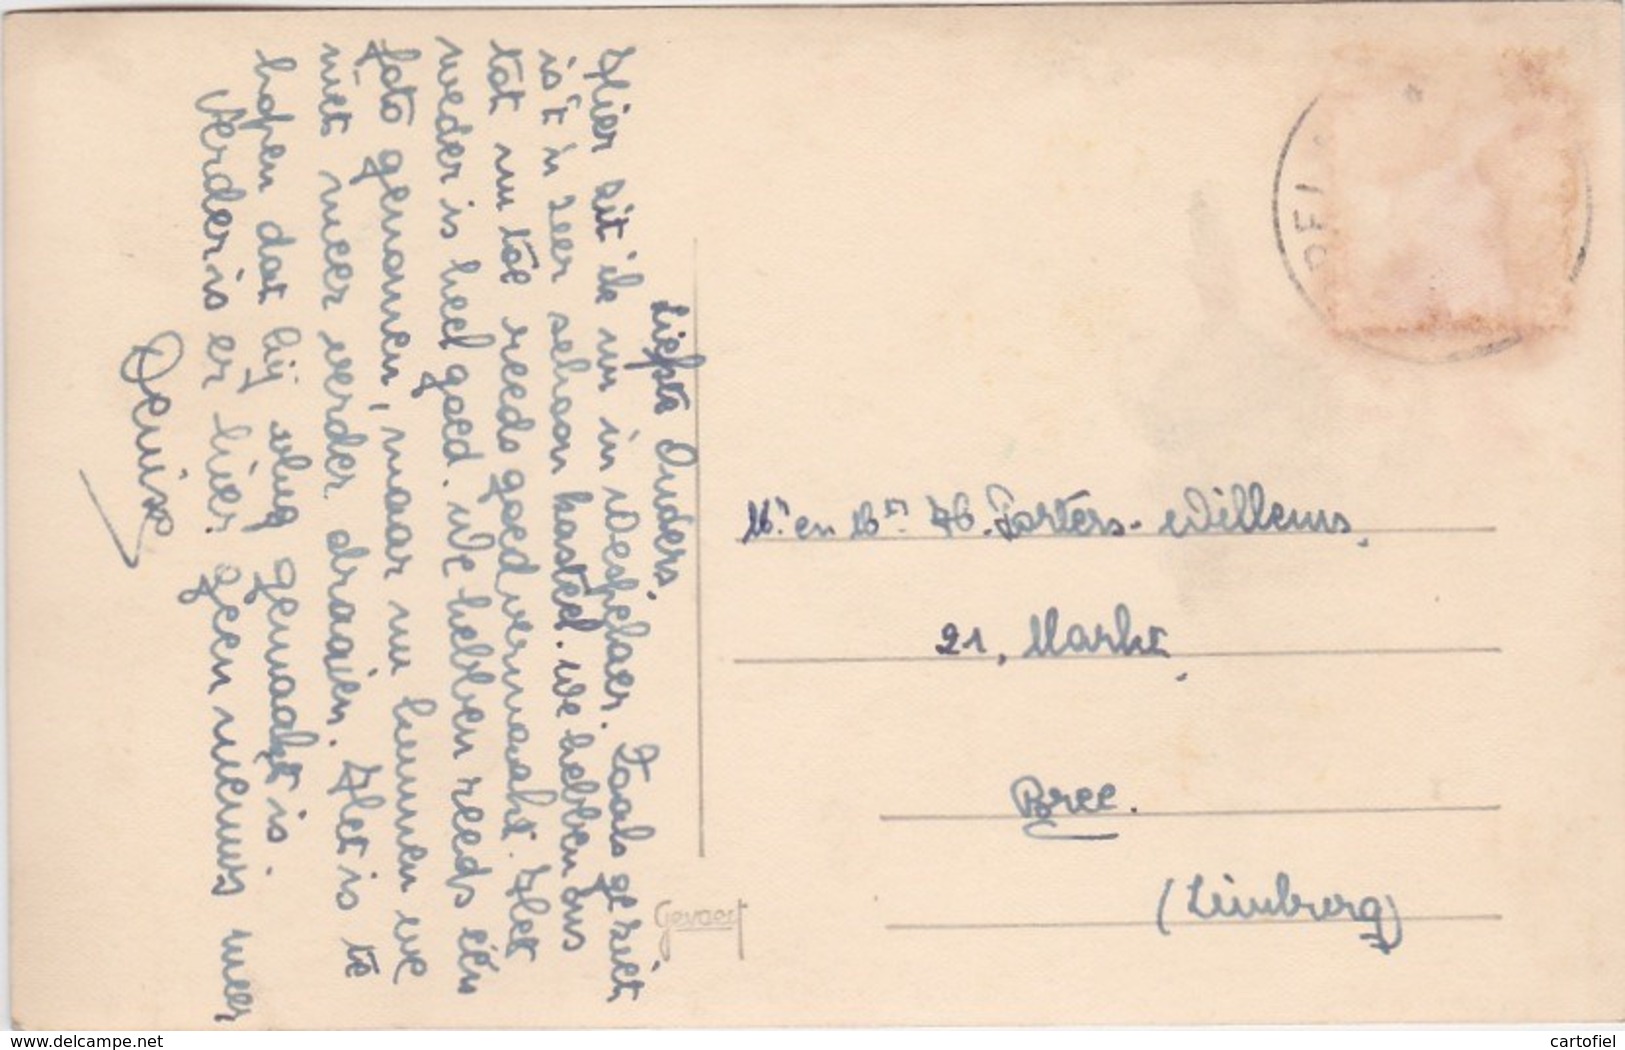 Liefste Ouders,
Hier zit ik nu in Wespelaer. Zoals ge ziet
is't 'n zeer schoon kasteel. We hebben ons
tot nu toe reeds goed vermaakt. Het
weder is heel goed. We hebben reeds één
foto genomen, maar nu kunnen we
niet meer verder draaien. Het is te
hopen dat hij vlug gemaakt is.
Verder is er hier geen nieuws meer
Denise
Mr en Mme H. Porters-Willems,
21, Markt,
Bree.
(Limburg)
Gevaert
delcampe.net
cartofiel